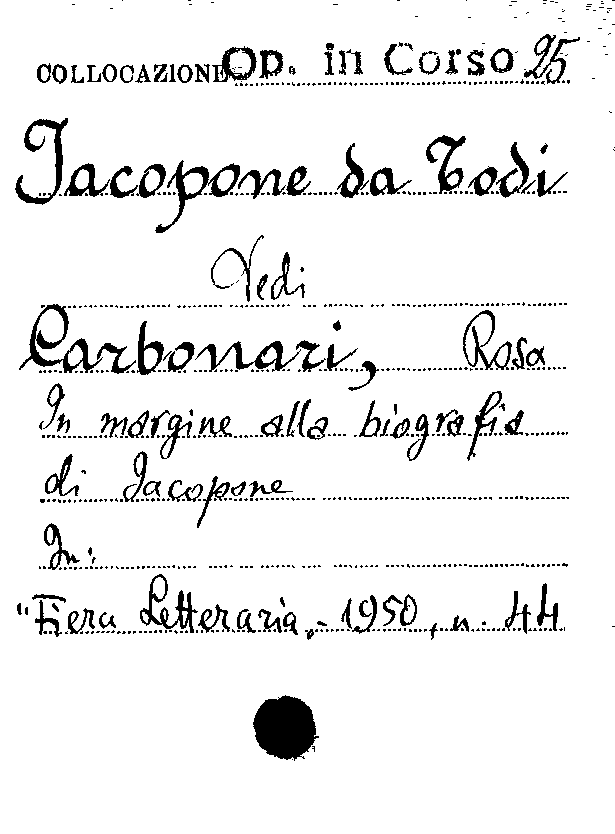 COLLOCAZIONE Op. in Corso 25
Jacopone da Todi
Vedi
Carbonari, Rosa
In margine alla biografia
di Jacopone
In:
"Fiera Letteraria,- 1950, n. 44